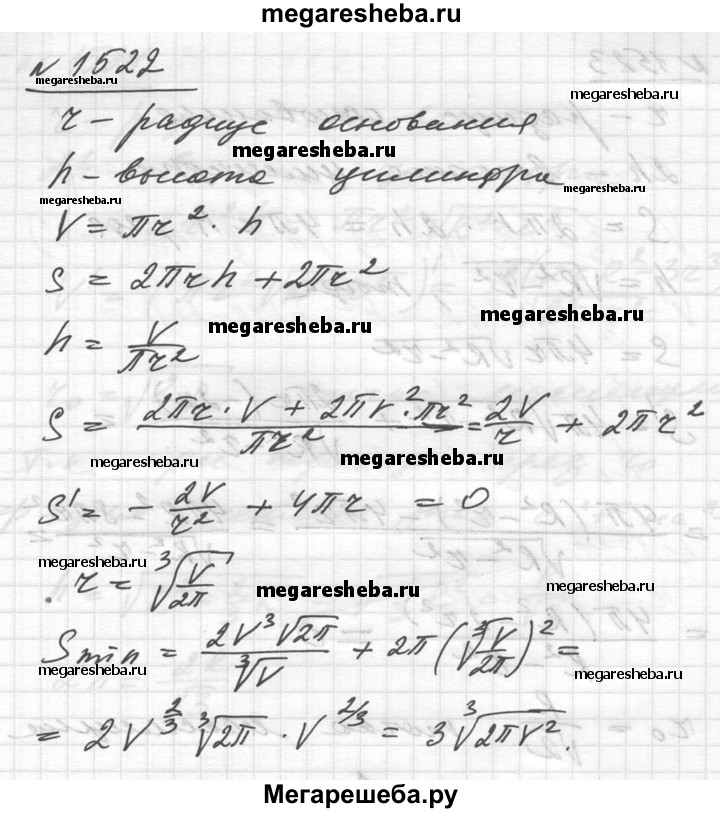 megaresheba.ru
№ 1522
megaresheba.ru
r - радиус основания
megaresheba.ru
megaresheba.ru
h - высота цилиндра
megaresheba.ru
megaresheba.ru
V = πr² · h
S = 2πrh + 2πr²
megaresheba.ru
megaresheba.ru
h = V/πr²
S = (2πr · V + 2πr² · πr²)/πr² = 2V/r + 2πr²
megaresheba.ru
megaresheba.ru
S' = - 2V/r² + 4πr = 0
megaresheba.ru
megaresheba.ru
megaresheba.ru
r = ∛(V/2π)
S min = 2V ∛(2π)/∛V + 2π(∛(V/2π))² =
megaresheba.ru
megaresheba.ru
= 2V^(2/3) ∛(2π) · V^(2/3) = 3∛(2πV²).
megaresheba.ru
megaresheba.ru
Мегарешеба.ру